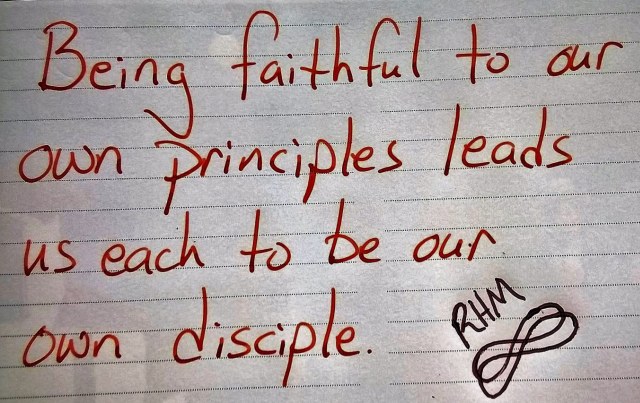 Being faithful to our
own principles leads
us each to be our
own disciple.
RHM